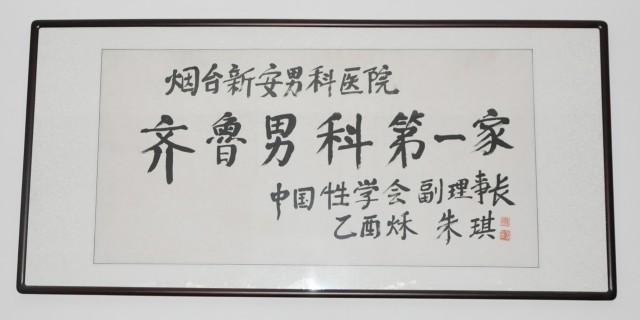 烟台新安男科医院
齐鲁男科第一家
中国性学会副理事长
乙酉秌 朱琪